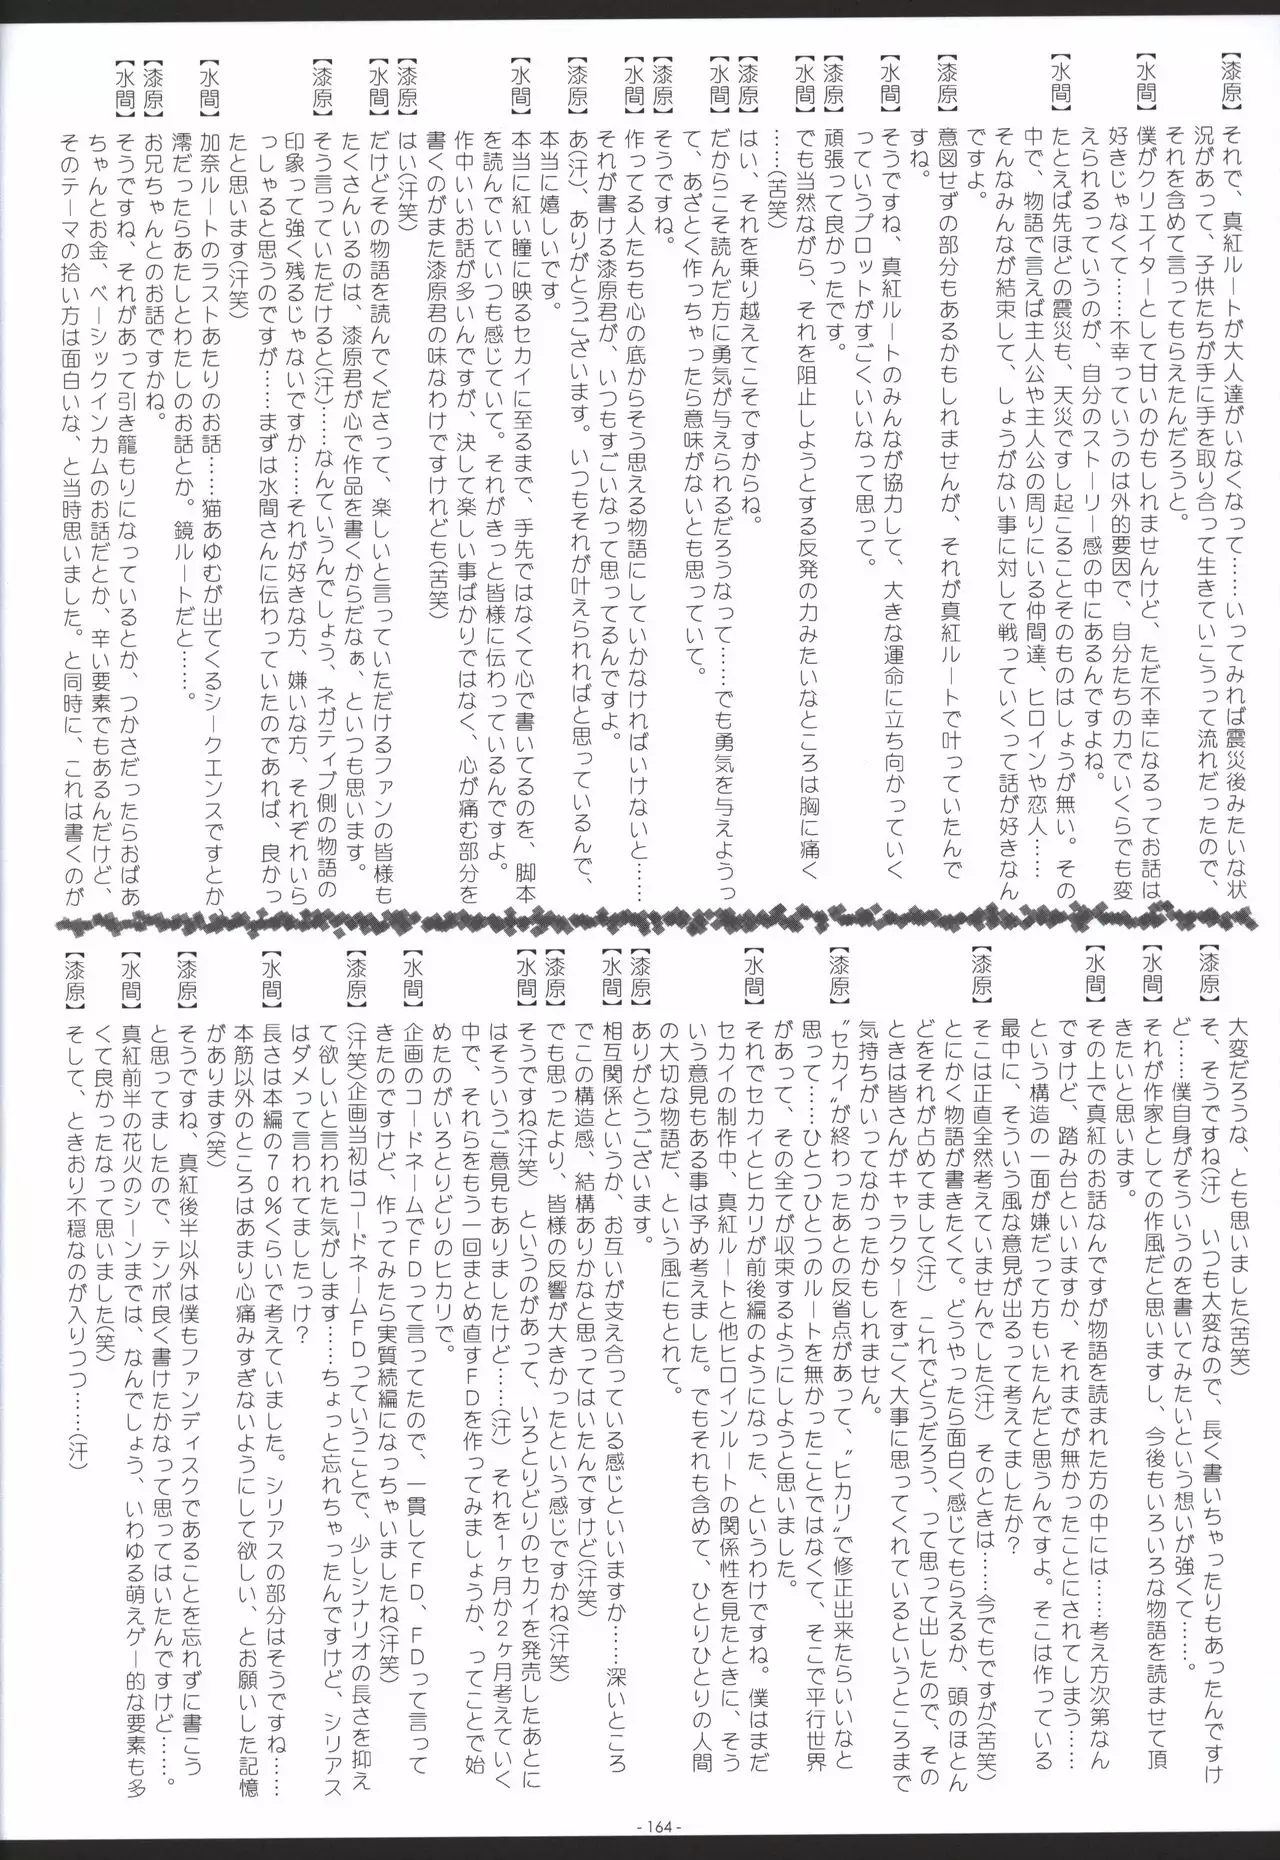 【漆原】それで、真紅ルートが大人達がいなくなって……いってみれば震災後みたいな状
況があって、子供たちが手に手を取り合って生きていこうって流れだったので、
それを含めて言ってもらえたんだろうと。
【水間】僕がクリエイターとして甘いのかもしれませんけど、ただ不幸になるってお話は
好きじゃなくて……不幸っていうのは外的要因で、自分たちの力でいくらでも変
えられるっていうのが、自分のストーリー感の中にあるんですよね。
【漆原】たとえば先ほどの震災も、天災ですし起こることそのものはしょうが無い。その
中で、物語で言えば主人公や主人公の周りにいる仲間達、ヒロインや恋人……
そんなみんなが結束して、しょうがない事に対して戦っていくって話が好きなん
ですよ。
【漆原】意図せずの部分もあるかもしれませんが、それが真紅ルートで叶っていたんで
すね。
【水間】そうですね、真紅ルートのみんなが協力して、大きな運命に立ち向かっていく
っていうプロットがすごくいいなって思って。
【漆原】頑張って良かったです。
【水間】でも当然ながら、それを阻止しようとする反発の力みたいなところは胸に痛く
……(苦笑)
【漆原】はい、それを乗り越えてこそですからね。
【水間】だからこそ読んだ方に勇気が与えられるだろうなって……でも勇気を与えようっ
て、あざとく作っちゃったら意味がないとも思っていて。
【漆原】そうですね。
【水間】作ってる人たちも心の底からそう思える物語にしていかなければいけないと……
それが書ける漆原君が、いつもすごいなって思ってるんですよ。
【漆原】あ(汗)、ありがとうございます。いつもそれが叶えられればと思っているんで、
本当に嬉しいです。
【水間】本当に紅い瞳に映るセカイに至るまで、手先ではなくて心で書いてるのを、脚本
を読んでいていつも感じていて。それがきっと皆様に伝わっているんですよ。
作中いいお話が多いんですが、決して楽しい事ばかりではなく、心が痛む部分を
書くのがまた漆原君の味なわけですけれども(苦笑)
【漆原】はい(汗笑)
【水間】だけどその物語を読んでくださって、楽しいと言っていただけるファンの皆様も
たくさんいるのは、漆原君が心で作品を書くからだなぁ、といつも思います。
【漆原】そう言っていただけると(汗)……なんていうんでしょう、ネガティブ側の物語の
印象って強く残るじゃないですか……それが好きな方、嫌いな方、それぞれいら
っしゃると思うのですが……まずは水間さんに伝わっていたのであれば、良かっ
たと思います(汗笑)
【水間】加奈ルートのラストあたりのお話……猫あゆむが出てくるシークエンスですとか
澪だったらあたしとわたしのお話とか。鏡ルートだと……。
【漆原】お兄ちゃんとのお話ですかね。
【水間】そうですね、それがあって引き籠もりになっているとか、つかさだったらおばあ
ちゃんとお金、ベーシックインカムのお話だとか、辛い要素でもあるんだけど、
そのテーマの拾い方は面白いな、と当時思いました。と同時に、これは書くのが
大変だろうな、とも思いました(苦笑)
【漆原】そ、そうですね(汗)　いつも大変なので、長く書いちゃったりもあったんですけ
ど……僕自身がそういうのを書いてみたいという想いが強くて……。
【水間】それが作家としての作風だと思いますし、今後もいろいろな物語を読ませて頂
きたいと思います。
【水間】その上で真紅のお話なんですが物語を読まれた方の中には……考え方次第なん
ですけど、踏み台といいますか、それまでが無かったことにされてしまう……
という構造の一面が嫌だって方もいたんだと思うんですよ。そこは作っている
最中に、そういう風な意見が出るって考えてましたか？
【漆原】そこは正直全然考えていませんでした(汗)　そのときは……今でもですが(苦笑)
とにかく物語が書きたくて。どうやったら面白く感じてもらえるか、頭のほとん
どをそれが占めてまして(汗)　これでどうだろう、って思って出したので、その
ときは皆さんがキャラクターをすごく大事に思ってくれているというところまで
気持ちがいってなかったかもしれません。
【漆原】〝セカイ〟が終わったあとの反省点があって、〝ヒカリ〟で修正出来たらいいなと
思って……ひとつひとつのルートを無かったことではなくて、そこで平行世界
があって、その全てが収束するようにしようと思いました。
【水間】それでセカイとヒカリが前後編のようになった、というわけですね。僕はまだ
セカイの制作中、真紅ルートと他ヒロインルートの関係性を見たときに、そう
いう意見もある事は予め考えました。でもそれも含めて、ひとりひとりの人間
の大切な物語だ、という風にもとれて。
【漆原】ありがとうございます。
【水間】相互関係というか、お互いが支え合っている感じといいますか……深いところ
でこの構造感、結構ありかなと思ってはいたんですけど(汗笑)
【漆原】でも思ったより、皆様の反響が大きかったという感じですかね(汗笑)
【水間】そうですね(汗笑)　というのがあって、いろとりどりのセカイを発売したあとに
はそういうご意見もありましたけど……(汗)　それを１ヶ月か２ヶ月考えていく
中で、それらをもう一回まとめ直すＦＤを作ってみましょうか、ってことで始
めたのがいろとりどりのヒカリで。
【水間】企画のコードネームでＦＤって言ってたので、一貫してＦＤ、ＦＤって言って
きたのですけど、作ってみたら実質続編になっちゃいましたね(汗笑)
【漆原】(汗笑)企画当初はコードネームＦＤっていうことで、少しシナリオの長さを抑え
て欲しいと言われた気がします……ちょっと忘れちゃったんですけど、シリアス
はダメって言われてましたっけ？
【水間】長さは本編の７０％くらいで考えていました。シリアスの部分はそうですね……
本筋以外のところはあまり心痛みすぎないようにして欲しい、とお願いした記憶
があります(笑)
【漆原】そうですね、真紅後半以外は僕もファンディスクであることを忘れずに書こう
と思ってましたので、テンポ良く書けたかなって思ってはいたんですけど……。
【水間】真紅前半の花火のシーンまでは、なんでしょう、いわゆる萌えゲー的な要素も多
くて良かったなって思いました(笑)
【漆原】そして、ときおり不穏なのが入りつつ……(汗)
- 164 -